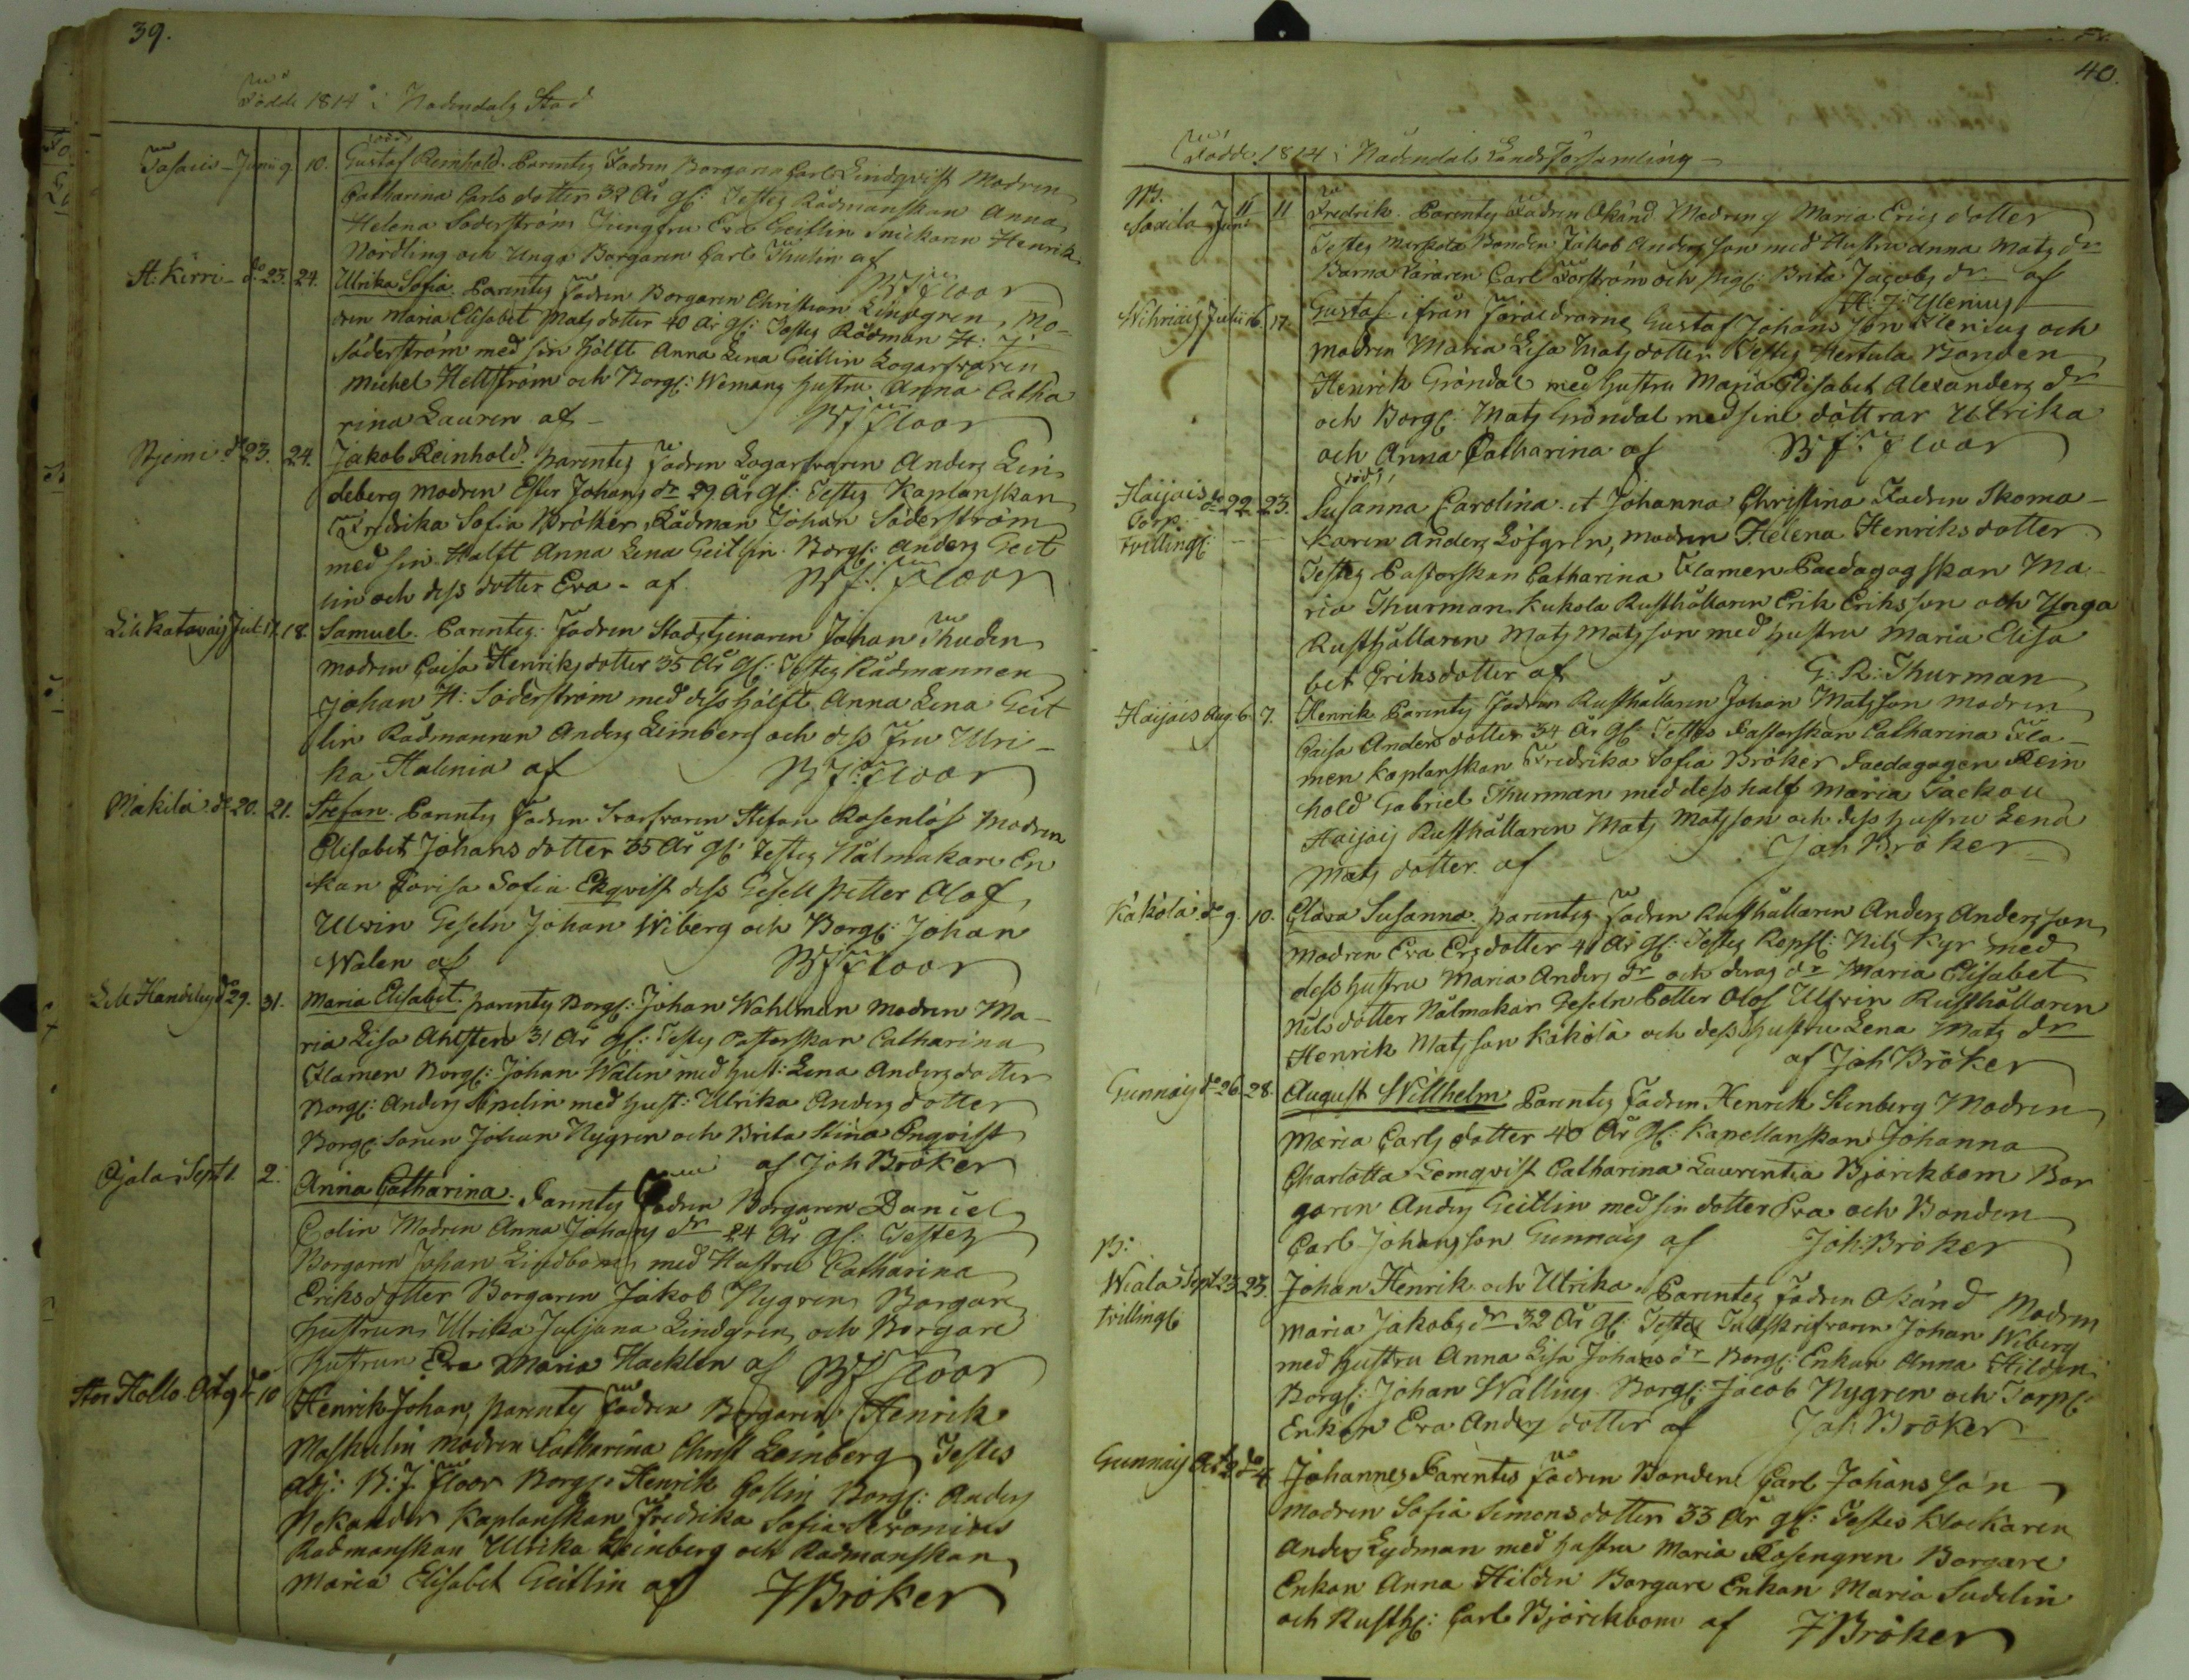 39.
Födde 1814 i Nådendals Stad
Tasais - Junii 9. 10. död Gustaf Reinhold. Parentes Fadren Borgaren Carl Lindqvist Modren
Catharina Carls dotter 32 År gl: Testes Rådmanskan Anna
Helena Söderström Jungfru Eva Geitlin Snickaren Henrik
Nordling och Unga Borgaren Carl Thulin af
BJ Floor
St. Kirri - do 23. 24. Ulrika Sofia. Parentes Fadren Borgaren Christian Lindgren, Mo-
dren Maria Elisabet Mats dotter 40 År gl: Testes Rådman H: J:
Söderström med sin hälft Anna Lena Geitlin Logarfvaren
Michel Hellström och Borgs: Wemans hustru Anna Catha
rina Lauren af - BJ Floor
Bjemi do 23. 24. Jakob Reinhold. Parentes Fadren Logarfvaren Anders Lin
deberg Modren Ester Johans dr 29 År gl: Testes Kaplanskan
Fredrika Sofia Bröker, Rådman Johan Söderström
med sin Hälft Anna Lena Geitlin. Borgs: Anders Geit
lin och dess dotter Eva - af BJ: Floor
Lill Katavais Jul: 17. 18. Samuel. Parentes: Fadren Stadstjenaren Johan Thudén
Modren Caisa Henriks dotter 35 År gl: Testes Rådmannen
Johan H: Söderström med dess hälft Anna Lena Geit
lin Rådmannen Anders Leinberg och dess Fru Ulri-
ka Halenia af BJ: Floor
Makila do 20. 21. Stefan. Parentes Fadren Svarfvaren Stefan Rosenlöf Modren
Elisabet Johans dotter 35 År gl: Testes Nålmakare En
kan Lovisa Sofia Ekqvist dess Gesell Petter Olof
Ulvin Geseln Johan Wiberg och Borgs: Johan
Walen af BJ Floor
Lill Handilus do 29. 31. Maria Elisabet. Parentes Borgs: Johan Wahlman Modren Ma-
ria Lisa Ahlsten 31 År gl: Testes Pastorskan Catharina
Flamen Borgs: Johan Walin med hust: Lena Anders dotter
Borgs: Anders Spelin med hust: Ulrika Anders dotter
Borgs: Sonen Johan Nygren och Brita Stina Enqvist
af Joh Bröker
Ajala Sept 1. 2. Anna Catharina. Parentes Fadren Borgaren Daniel
Colin Modren Anna Johans dr 24 År gl: Testes
Borgaren Johan Lindbom med Hustru Catharina
Eriksdotter Borgaren Jakob Nygren Borgare
hustrun Ulrika Juliana Lindgren och Borgare
hustrun Eva Maria Hacklin af BJ Floor
Stor Kollo Oct 9 do 10 Henrik Johan, Parentes Fadren Borgaren Henrik
Maskulin Modren Catharina Christ Leinberg Testes
Adj: B: J Floor Borgs: Henrik Collin Borgs: Anders
Nekander Kaplanskan Fredrika Sofia
Rådmanskan Ulrika Leinberg och Rådmanskan
Maria Elisabet Geitlin af J Bröker
40.
Födde 1814 i Nådendals Lands Församling -
NB.
Saxila Juni 11 11 Fredrik. Parentes Fadren Okänd Modren Maria Erics dotter
Testes Bonden Jakob Andersson med Hustru Anna Mats dr
Barna Läraren Carl Forström och Pigs: Brita Jacobs dr af
H: J: Ylenius
Wihriais Julii 16. 17. Gustaf ifrån Föräldrarne Gustaf Johans son Ylenius och
Modren Maria Lisa Matsdotter Testes Hertula Bonden
Henrik Gröndal med hustru Maria Elisabet Alexanders dr
och Borgs: Mats Gröndal med sine döttrar Ulrika
och Anna Catharina af BJ: Floor
Haijais Torp. tvillings: do 22 23. död Susanna Carolina et Johanna Christina Fadren Skoma-
karen Anders Löfgren, Modren Helena Henriksdotter
Testes Pastorskan Catharina Flamen Paedagogskan Ma-
ria Thurman. Kukola Rusthållaren Erik Eriksson och Unga
Rusthållaren Mats Matsson med hustru Maria Elisa
bet Eriksdotter af G: R: Thurman
Haijais Aug. 6. 7. Henrik Parentes Fadren Rusthållaren Johan Matsson Modren
Caisa Anders dotter 34 År gl: Testes Pastorskan Catharina Fla-
men Kaplanskan Fredrika Sofia Bröker Paedagogen Rein
hold Gabriel Thurman med dess half Maria Packou
Haijais Rusthållaren Mats Matsson och dess hustru Lena
Mats dotter. af Joh Bröker
Käkölä do 9. 10. Clara Susanna. Parentes Fadren Rusthållaren Anders Andersson
Modren Eva Ersdotter 41 År gl: Testes Repsl: Nils Kyr med
dess hustru Maria Anders dr och deras dr Maria Elisabet
Nilsdotter Nålmakar Geseln Petter Olof Ulfvin Rusthållaren
Henrik Matsson Käkölä och dess hustru Lena Mats dr
af Joh Bröker
Gunnais do 26. 28. August Willhelm Parentes Fadren Henrik Stenberg Modren
Maria Carls dotter 40 År gl: Kapellanskan Johanna
Charlotta Lemqvist Catharina Laurentia Björckbom Bor
garen Anders Geitlin med sin dotter Eva och Bonden
Carl Johansson Gunnais af Joh: Bröker
B:
Wiala Sept 23. 23. tvillings: Johan Henrik och Ulrika. Parentes Fadren Okänd Modren
Maria Jakobs dr 32 År gl: Testes Tullskrifvaren Johan Wiberg
med hustru Anna Lisa Johans dr Borgs: Enkan Anna Hilden
Borgs: Johan Wallius. Borgs: Jacob Nygren och Torps:
Enkan Eva Anders dotter af Joh Bröker
Gunnais Oct 2 do 4. Johannes Parentes Fadren Bonden Carl Johansson
Modren Sofia Simonsdotter 33 År gl: Testes Klockaren
Anders Lydman med hustru Maria Rosengren Borgare
Enkan Anna Hilden Borgare Enkan Maria Sudelin
och Rusth: Carl Björckbom af J Bröker